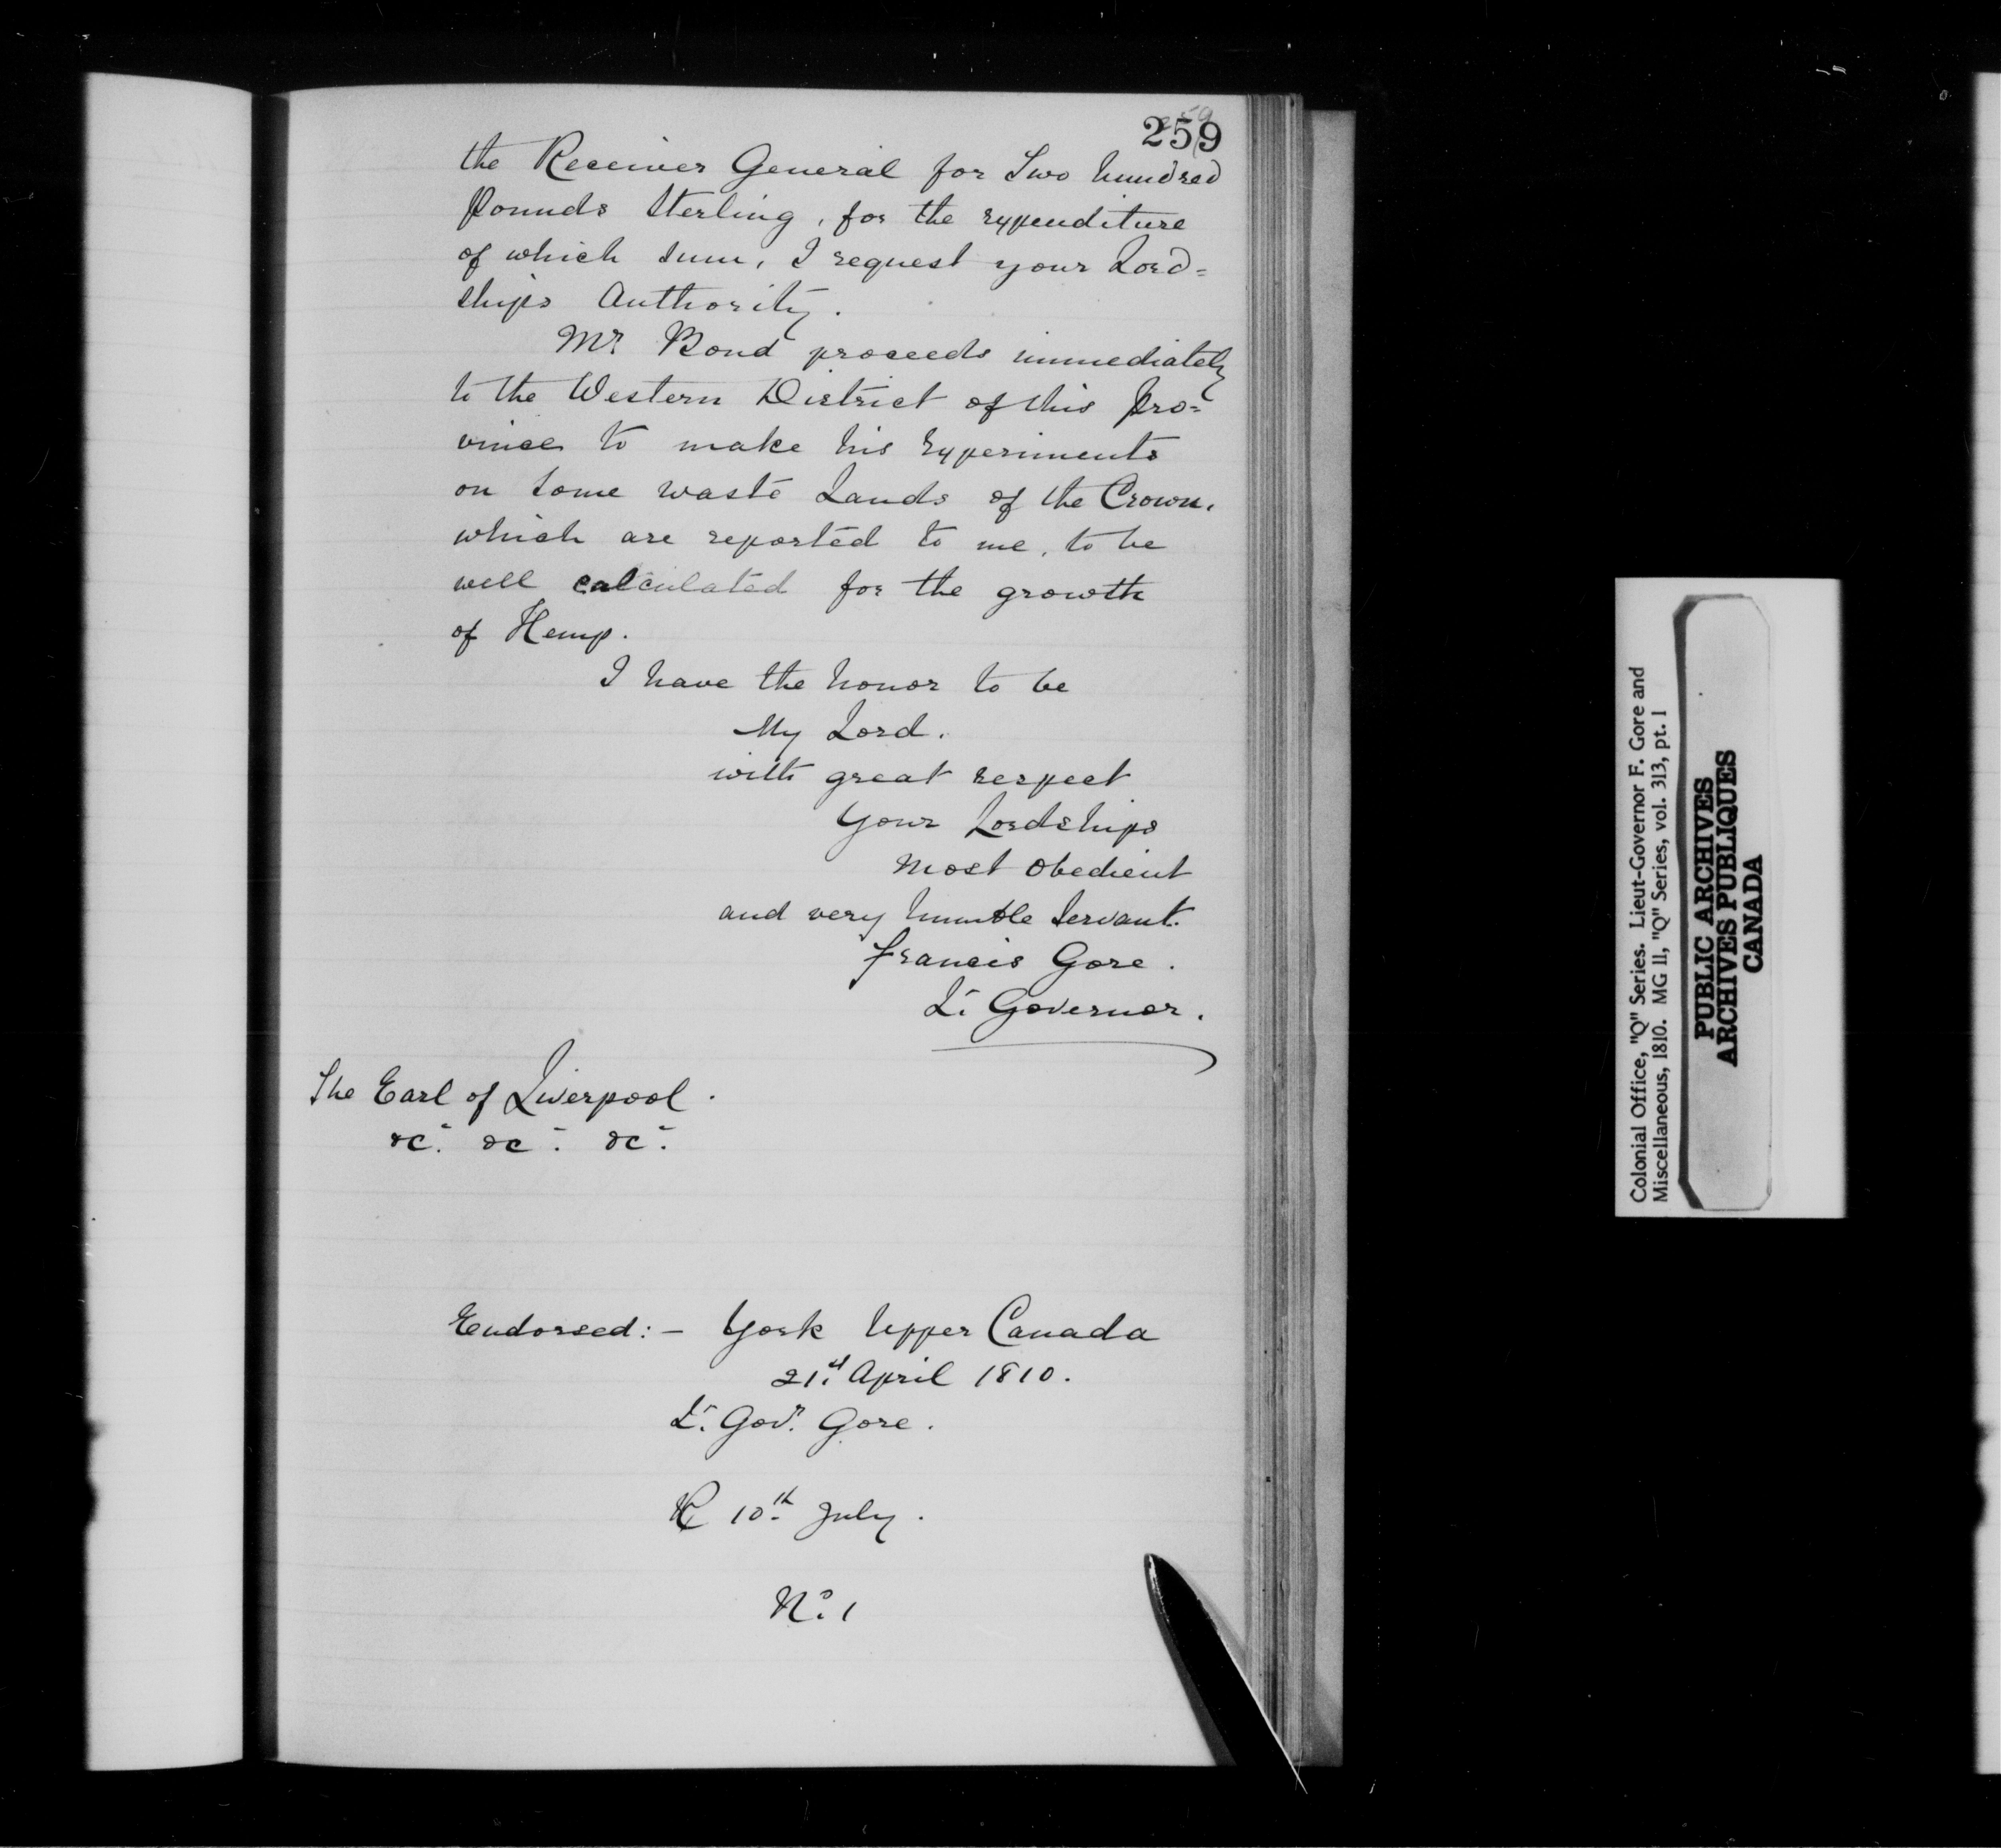 259
the Receiver General for Two hundred
Pounds Sterling, for the expenditure
of which sum, I request your Lord=
ships Authority.
Mr Bond proceeds immediately
to the Western District of this Pro=
vince to make his Experiments
on some waste Lands of the Crown,
which are reported to me, to be
well calculated for the growth
of Hemp.
I have the honor to be
My Lord.
with great respect
Your Lordships
most obedient
and very humble Servant.
Francis Gore.
Lt. Governor.
The Earl of Liverpool.
&c. &c. &c.
Endorsed:- York Upper Canada
21st April 1810.
Lt. Govr. Gore.
R 10th July.
No. 1
Colonial Office, "Q" Series. Lieut-Governor F. Gore and
Miscellaneous, 1810. MG 11, "Q" Series, vol. 313, pt. 1
PUBLIC ARCHIVES
ARCHIVES PUBLIQUES
CANADA